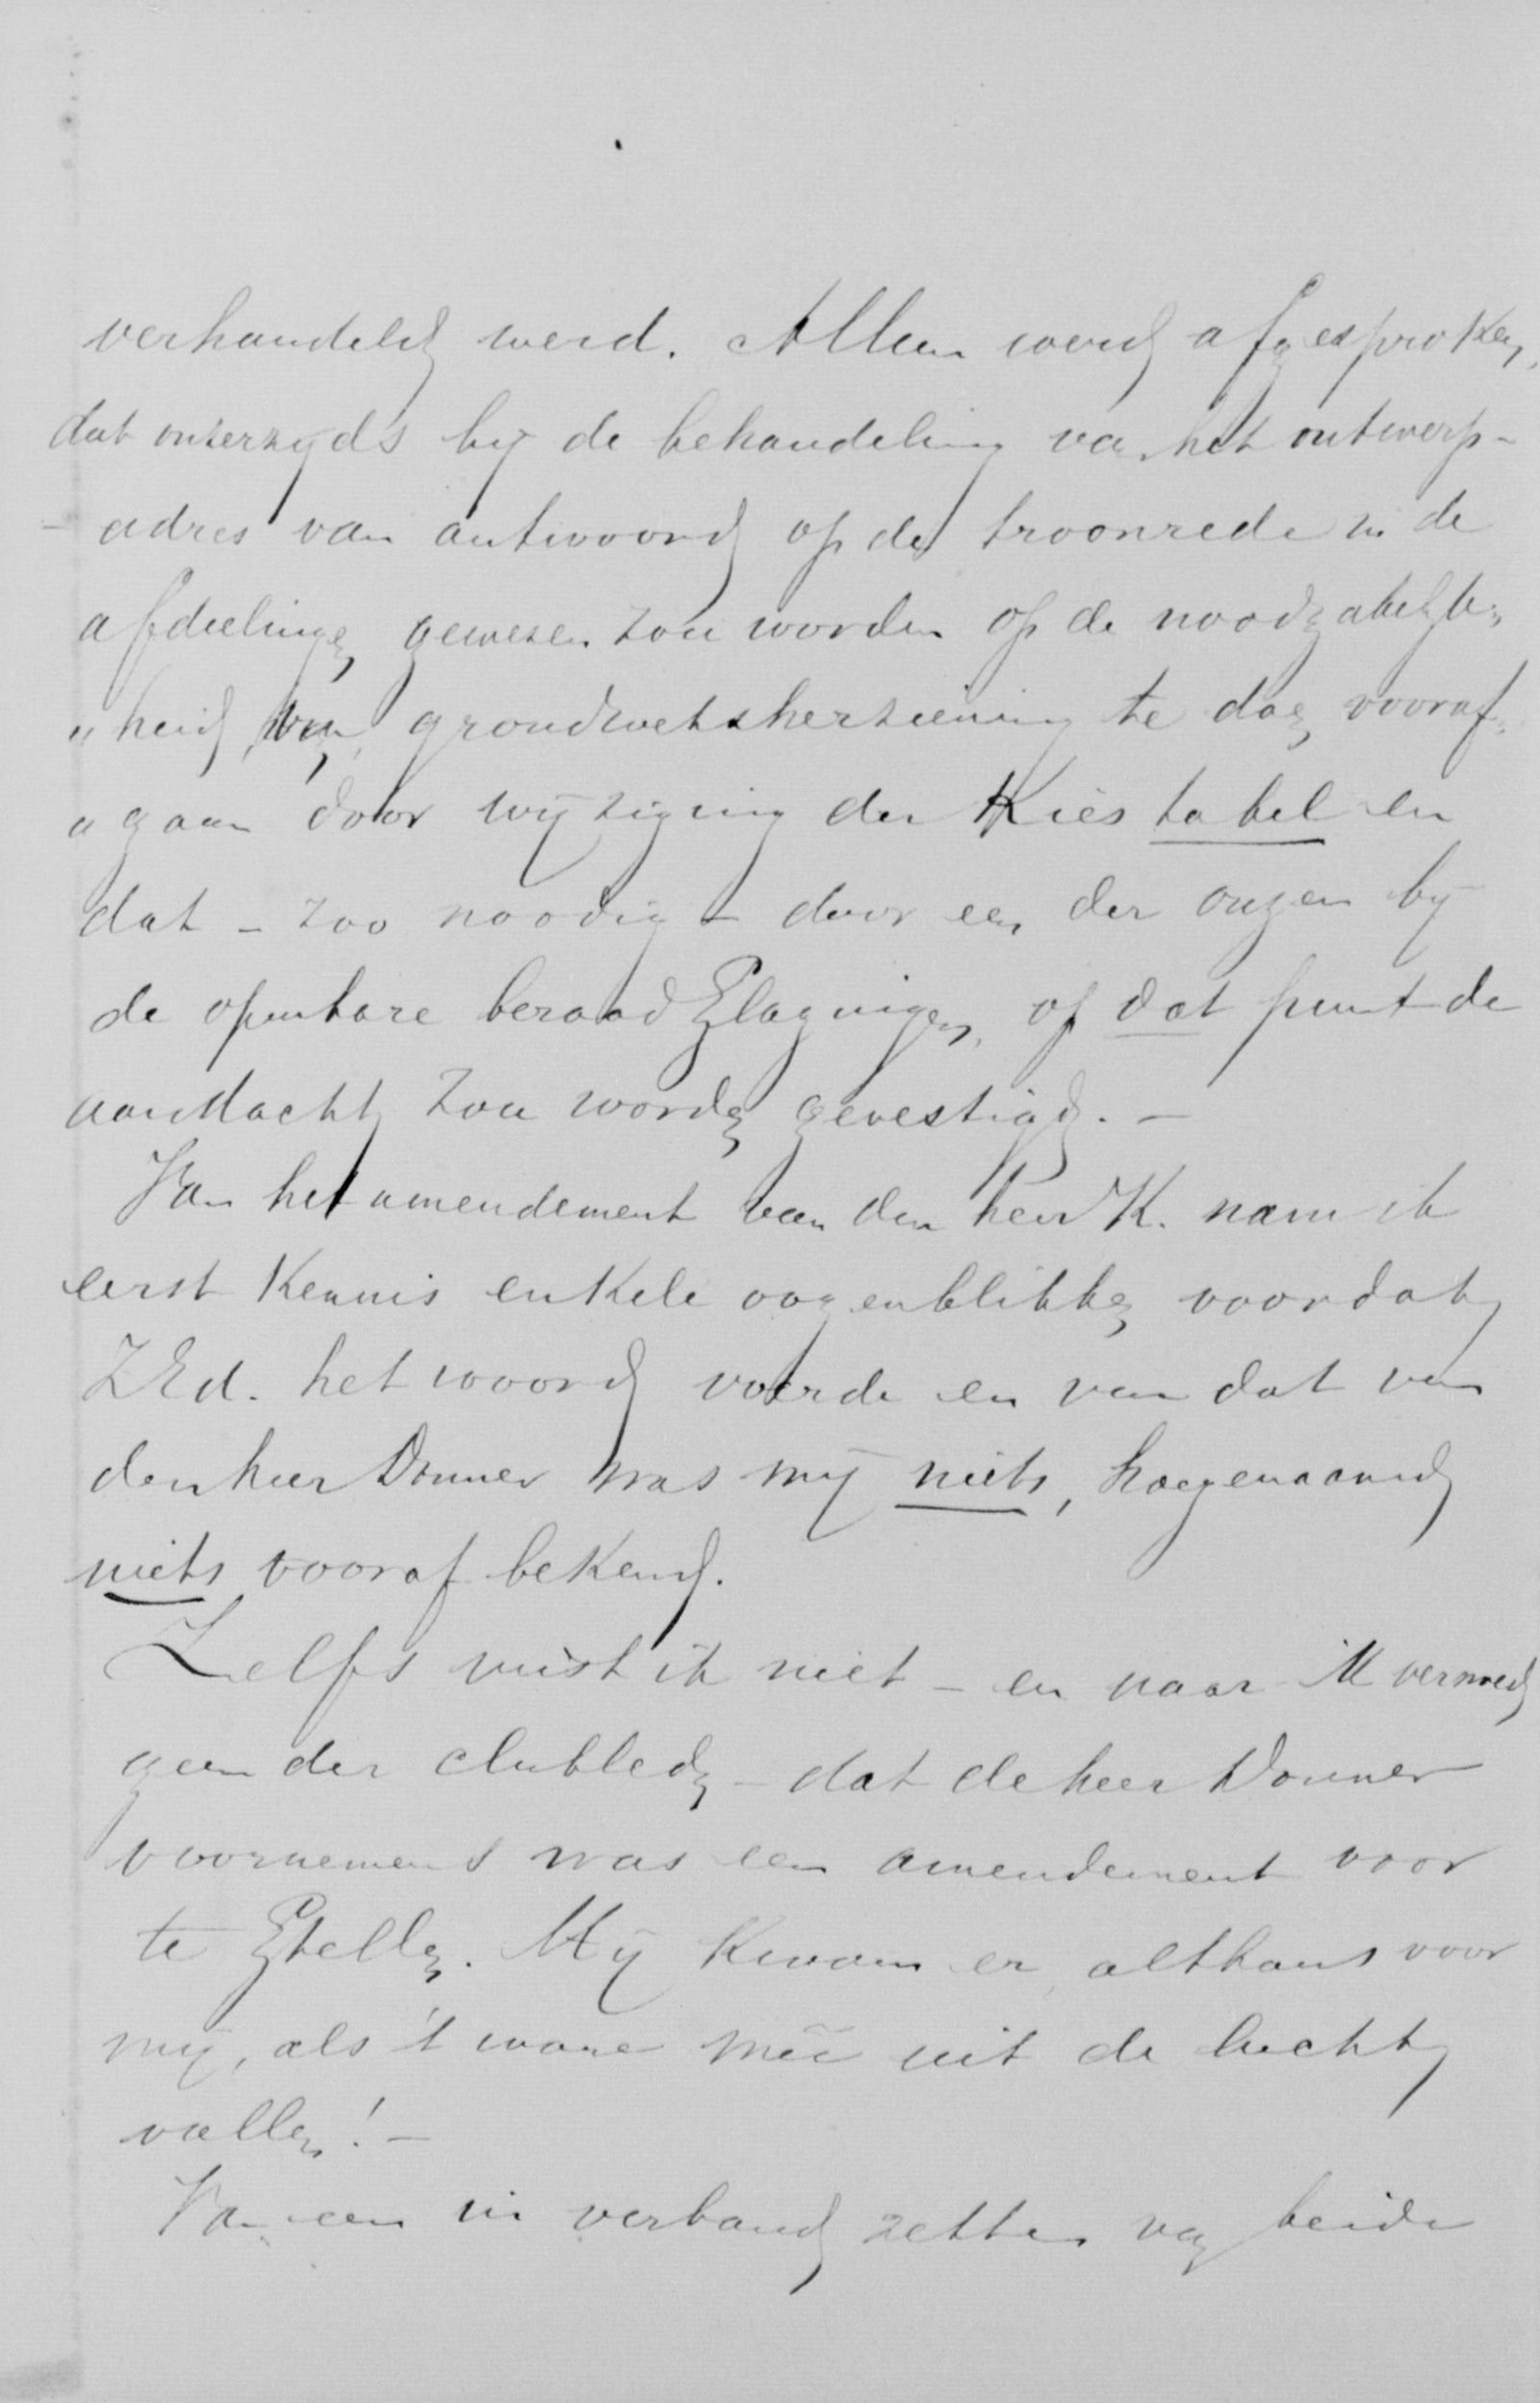 verhandeld werd. Alleen werd afgesproken,
dat onzerzijds bij de behandeling van het ontwerp-
- adres van antwoord op de troonrede in de
afdeelingen gewezen zou worden op de noodzakelijk„
„heid van grondwetsherziening te doen vooraf„
„gaan door wijziging der Kies tabel en
dat – zoo noodig – door een der onzen bij
de openbare beraadslagingen, op dat punt de
aandacht zou worden gevestigd. –
Van het amendement van den heer K. nam ik
eerst kennis enkele oogenblikken voordat
ZEd. het woord voerde en van dat van
den heer Donner was mij niets, hoegenaamd
niets vooraf bekend.
Zelfs wist ik niet – en naar ik vermoed
geen der clubleden – dat de heer Donner
voornemens was een amendement voor
te stellen. Mij kwam er, althans voor
mij, als 't ware meê uit de lucht
vallen! –
Van een in verband zetten van beide